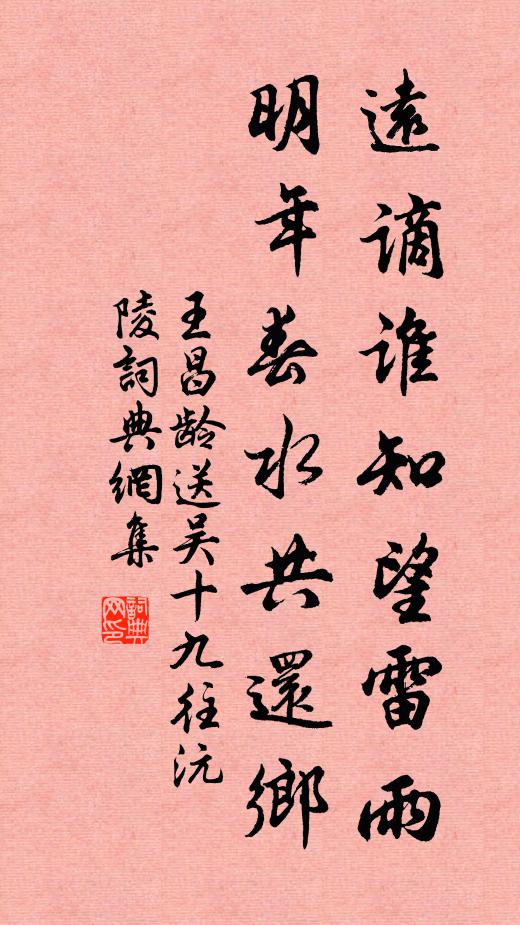 遠謫誰知望雷雨
明年春水共還鄉
王昌齡送吴十九往沅
陵詞典網集
詞典網印